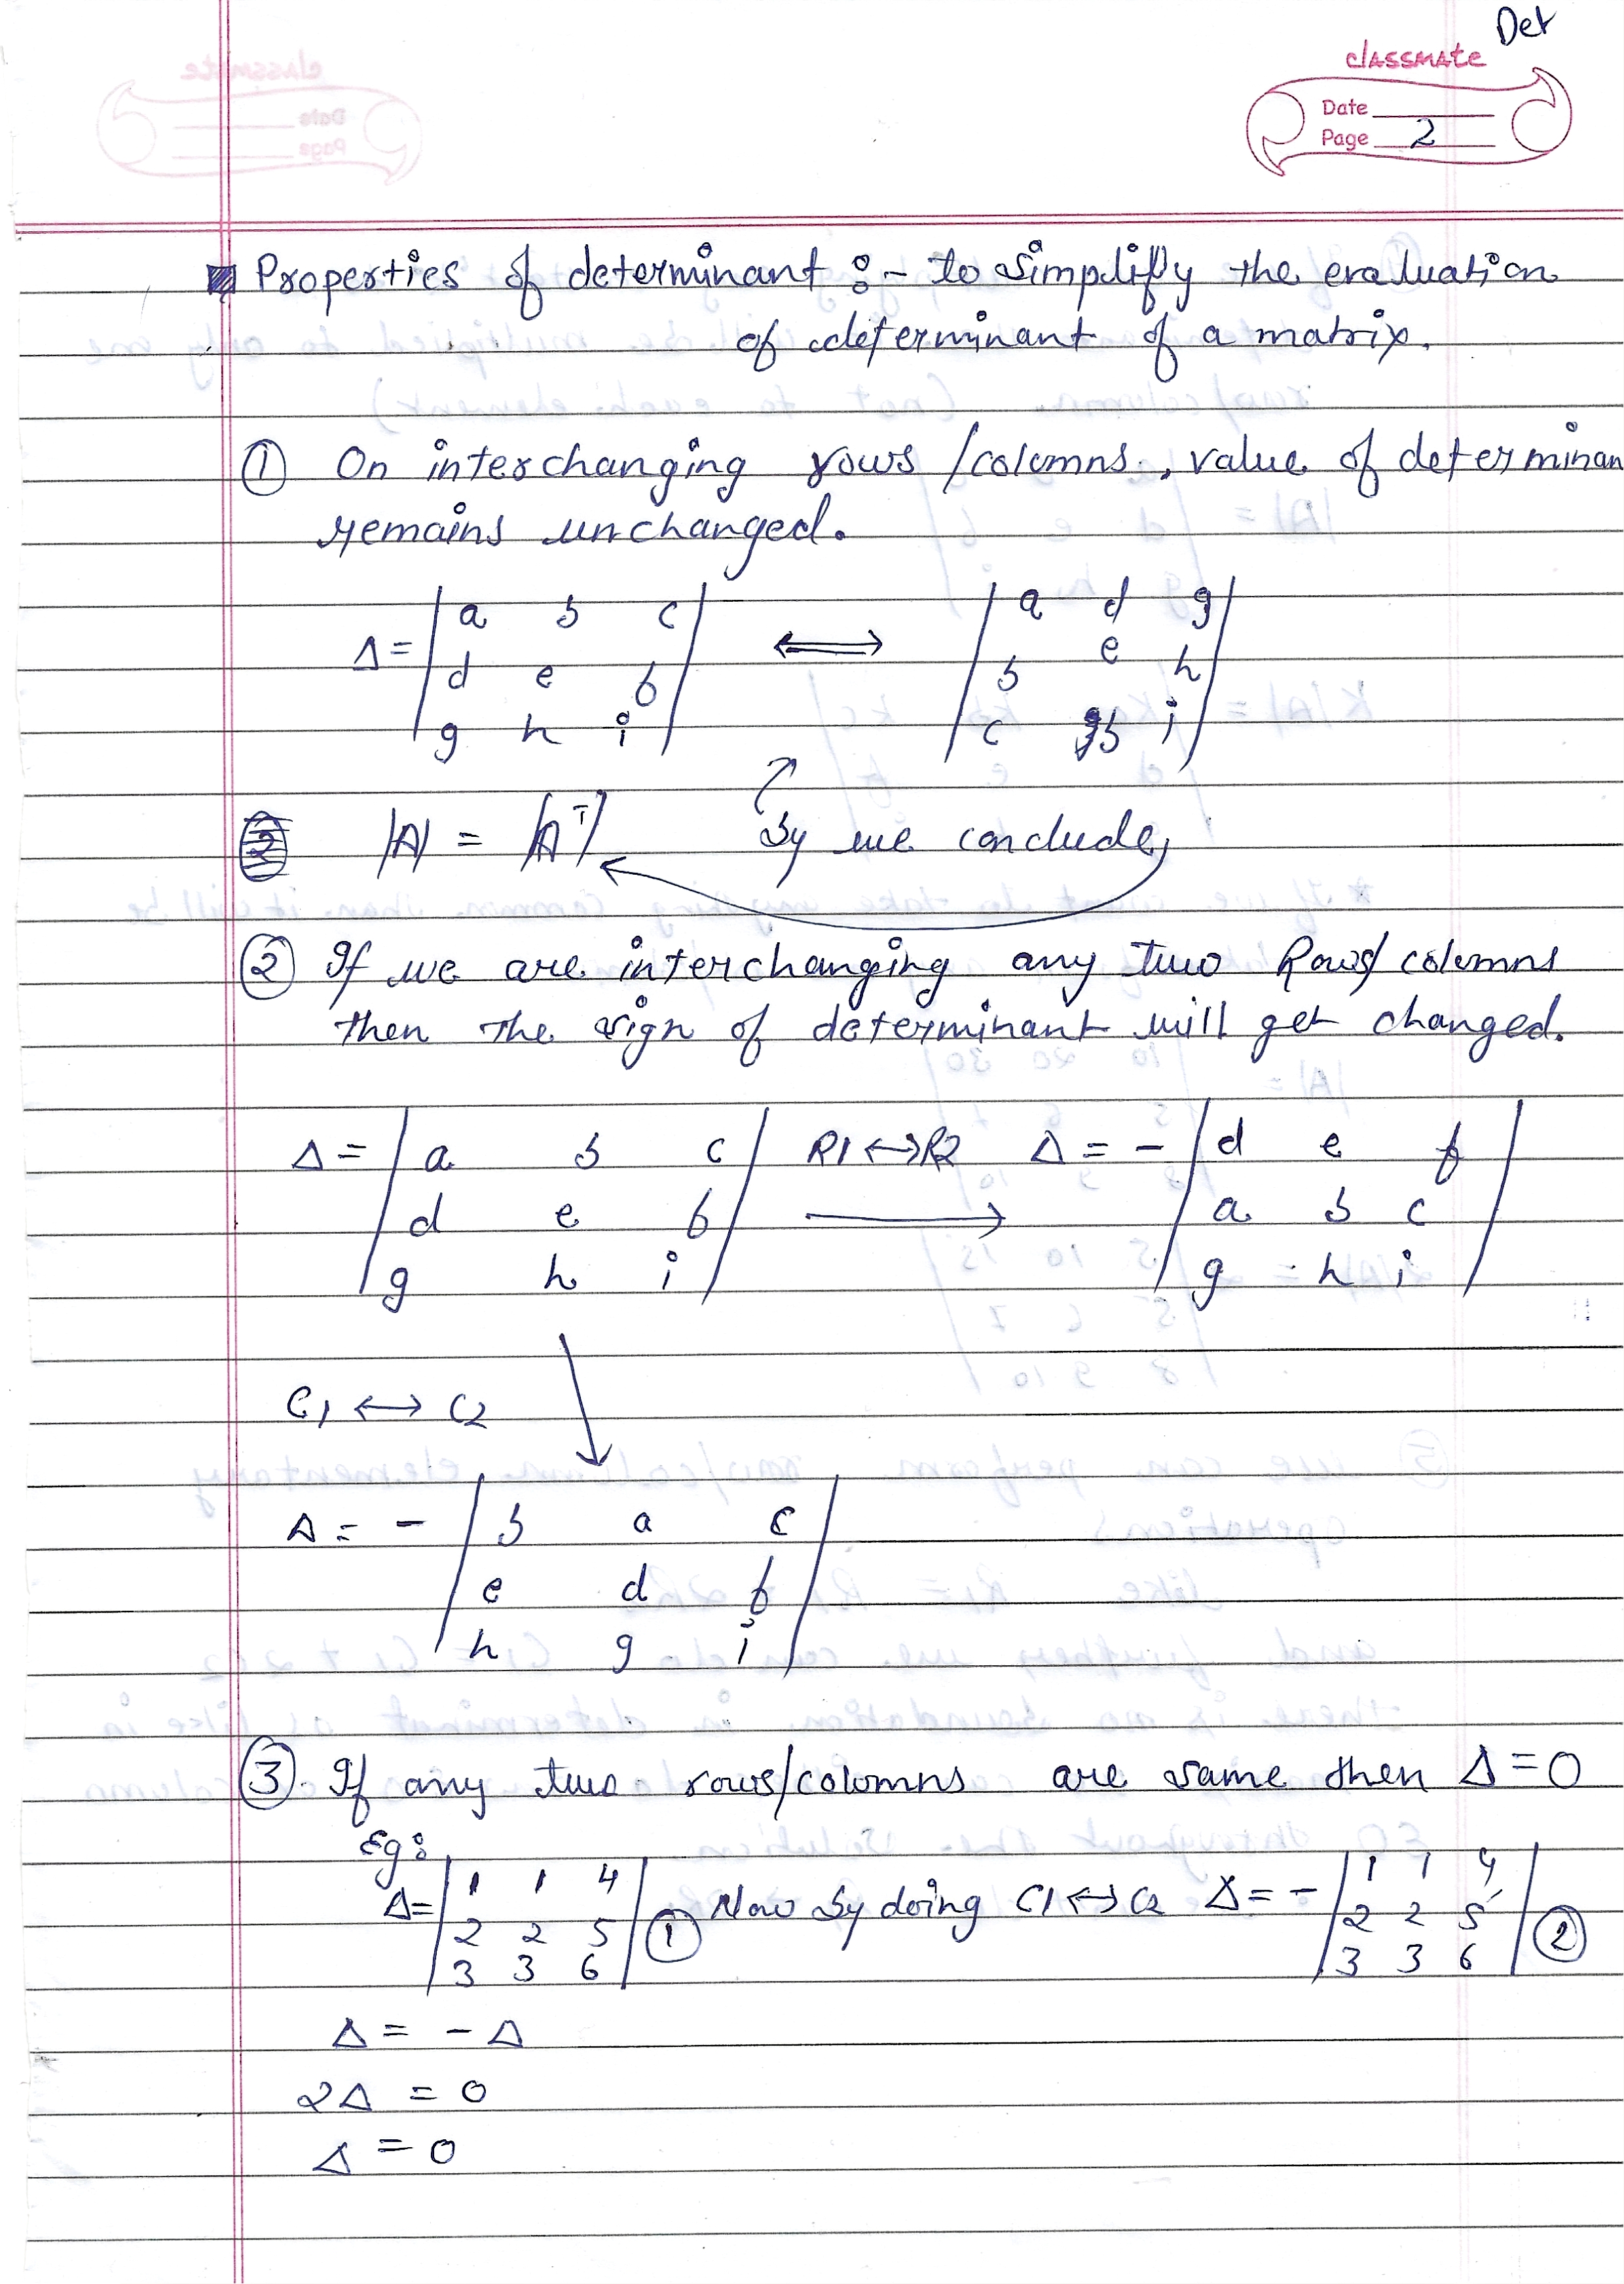 Det
classmate
Date
Page 2
Properties of determinant :- to simplify the evaluation
of determinant of a matrix.
① On interchanging rows/columns, value of determinan
remains unchanged.
Δ = | a b c | ⟺ | a d g |
| d e f | | b e h |
| g h i | | c f i |
|A| = |A^T| by we conclude,
② If we are interchanging any two Rows/columns
then the sign of determinant will get changed.
Δ = | a b c | R1 ↔ R2 Δ = - | d e f |
| d e f | ⟶ | a b c |
| g h i | | g h i |
C1 ↔ C2
Δ = - | b a c |
| e d f |
| h g i |
③ If any two rows/columns are same then Δ = 0
Eg:
Δ = | 1 1 4 | ① Now by doing C1 ↔ C2 Δ = - | 1 1 4 | ②
| 2 2 5 | | 2 2 5 |
| 3 3 6 | | 3 3 6 |
Δ = - Δ
2Δ = 0
Δ = 0